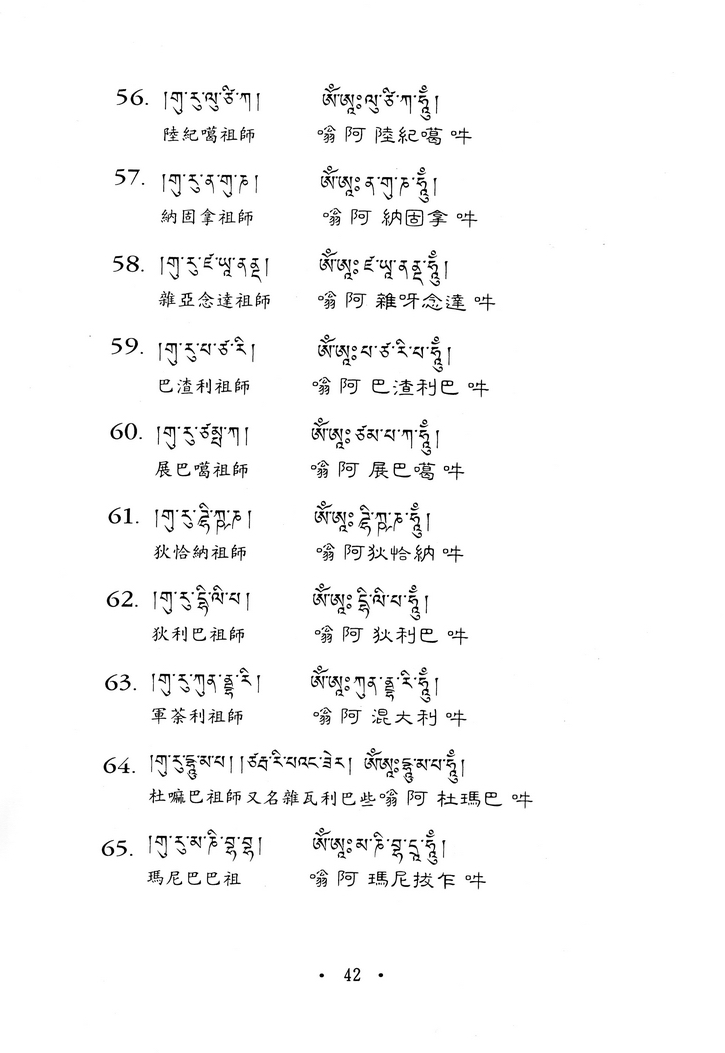 56. །གུ་རུ་ལུ་ཙི་ཀ། ཨོཾ་ཨཱཿལུ་ཙི་ཀ་ཧཱུྃ།
陸紀噶祖師 嗡 阿 陸紀噶 吽
57. །གུ་རུ་ན་གུ་ཎ། ཨོཾ་ཨཱཿན་གུ་ཎ་ཧཱུྃ།
納固拿祖師 嗡 阿 納固拿 吽
58. །གུ་རུ་ཛ་ཡཱ་ནནྡ། ཨོཾ་ཨཱཿཛ་ཡཱ་ནནྡ་ཧཱུྃ།
雜亞念達祖師 嗡 阿 雜呀念達 吽
59. །གུ་རུ་པ་ཙ་རི། ཨོཾ་ཨཱཿཔ་ཙ་རི་པ་ཧཱུྃ།
巴渣利祖師 嗡 阿 巴渣利巴 吽
60. །གུ་རུ་ཙམྤ་ཀ། ཨོཾ་ཨཱཿཙམ་པ་ཀ་ཧཱུྃ།
展巴噶祖師 嗡 阿 展巴噶 吽
61. །གུ་རུ་
狄恰納祖師 嗡 阿狄恰納 吽
62. །གུ་རུ་
狄利巴祖師 嗡 阿 狄利巴 吽
63. །གུ་རུ་ཀུན་
軍荼利祖師 嗡 阿 混大利 吽
64. །གུ་རུ་
杜嘛巴祖師又名雜瓦利巴些嗡 阿 杜瑪巴 吽
65. །གུ་རུ་མ་ཎི་
瑪尼巴巴祖 嗡 阿 瑪尼拔乍 吽
• 42 •